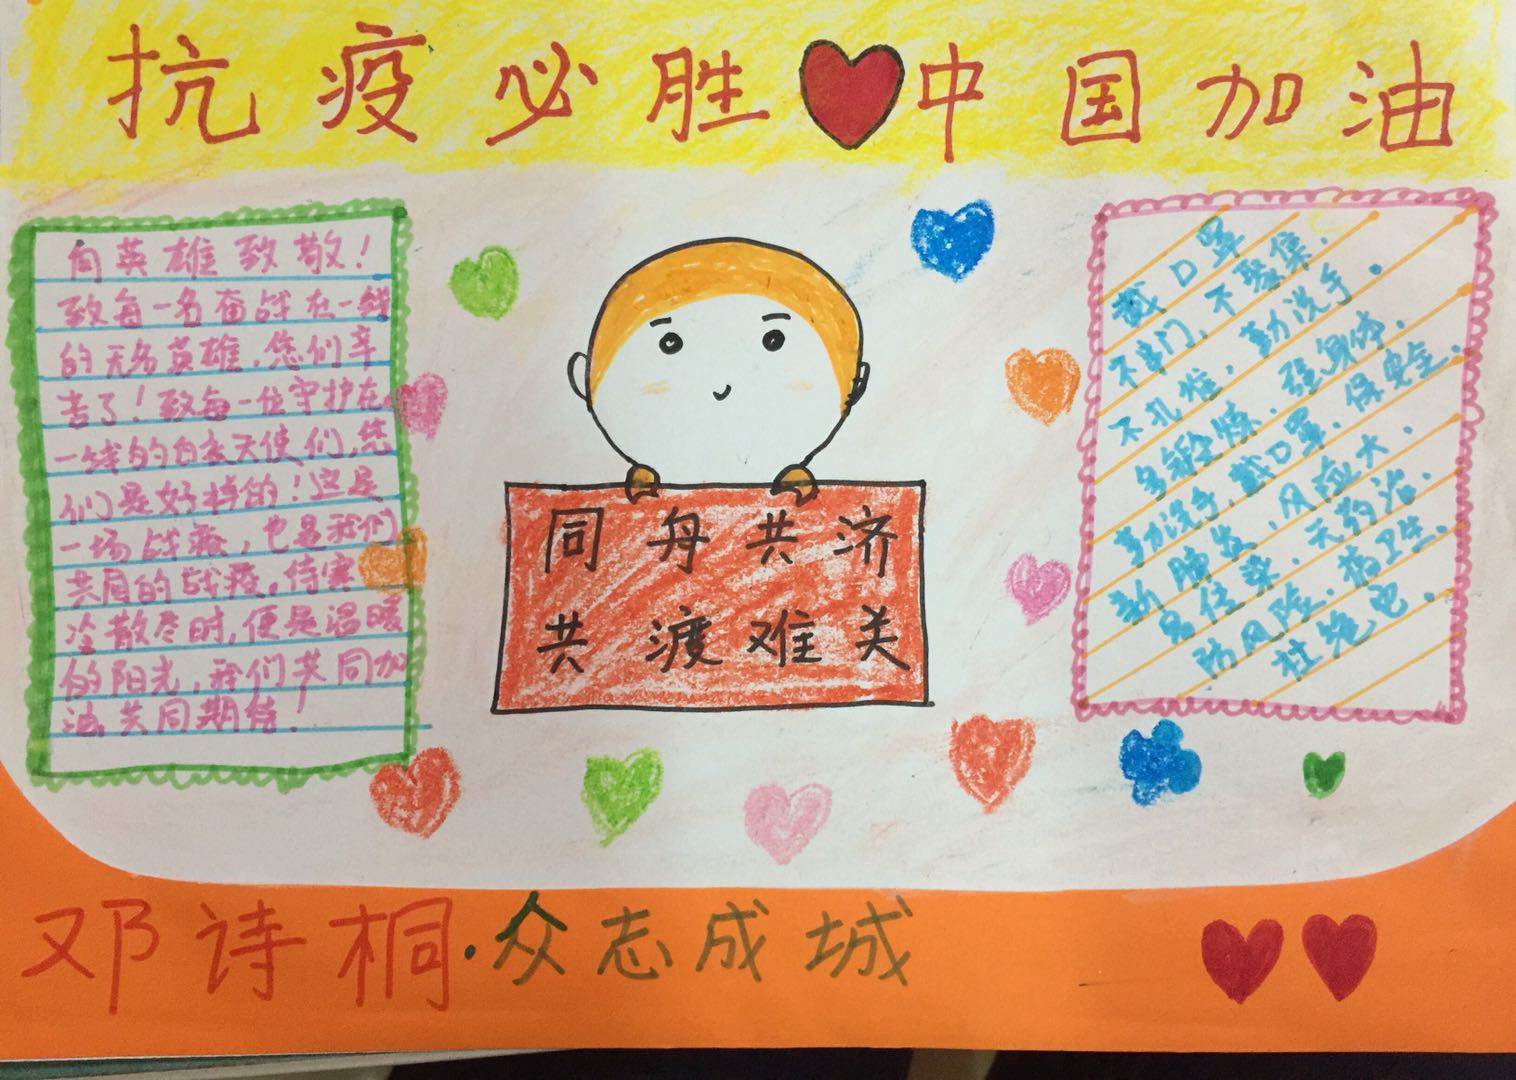 抗疫必胜 中国加油
向英雄致敬！
致每一名奋战在一线
的无名英雄，您们辛
苦了！致每一位守护在
一线的白衣天使们，您
们是好样的！这是
一场战疫，也是我们
共同的战疫，待寒
冷散尽时，便是温暖
的阳光，我们共同加
油，共同期待！
同舟共济
共渡难关
戴口罩
不串门，不聚集，
不扎堆，勤洗手。
多锻炼，强身体，
勤洗手，戴口罩，保安全。
新肺炎，风险大，
易传染，无药治，
防风险，搞卫生，
杜绝它。
邓诗桐·众志成城